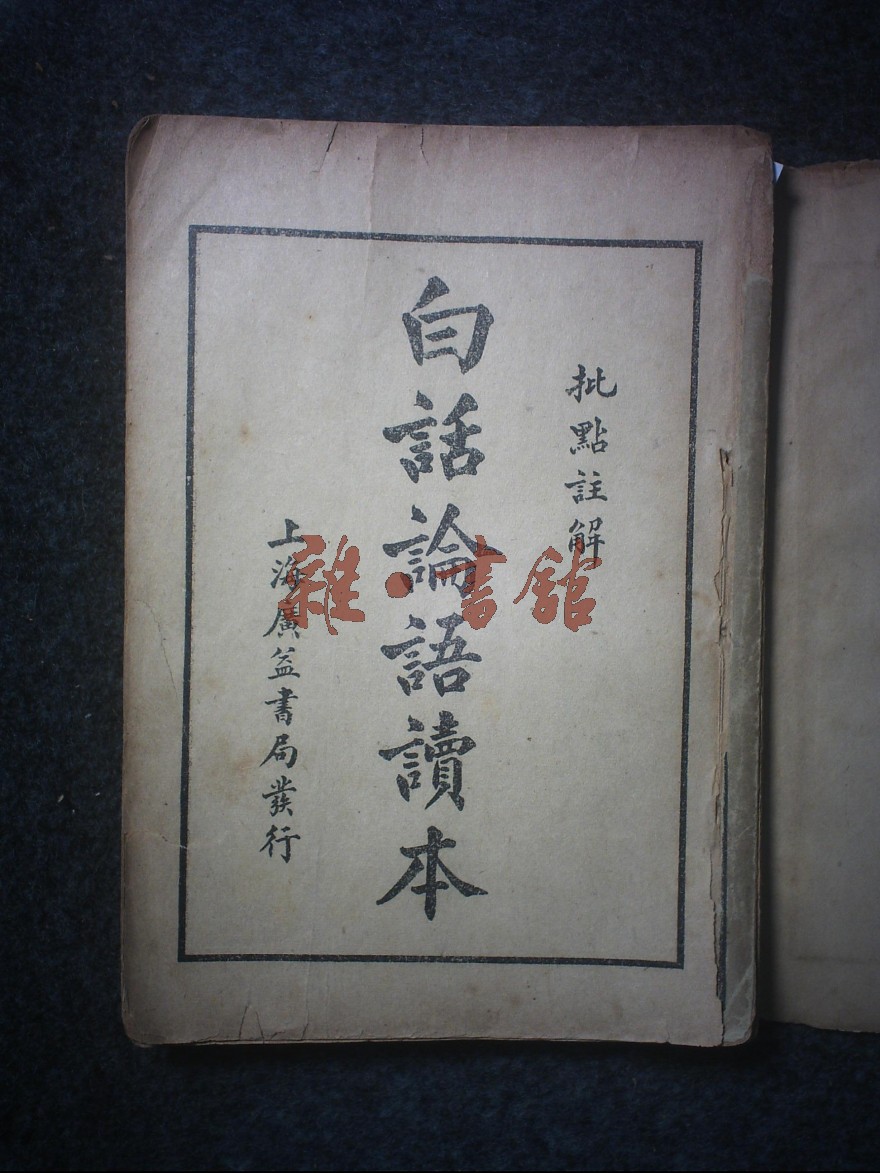 批點註解
白話論語讀本
上海廣益書局發行
雜·書館